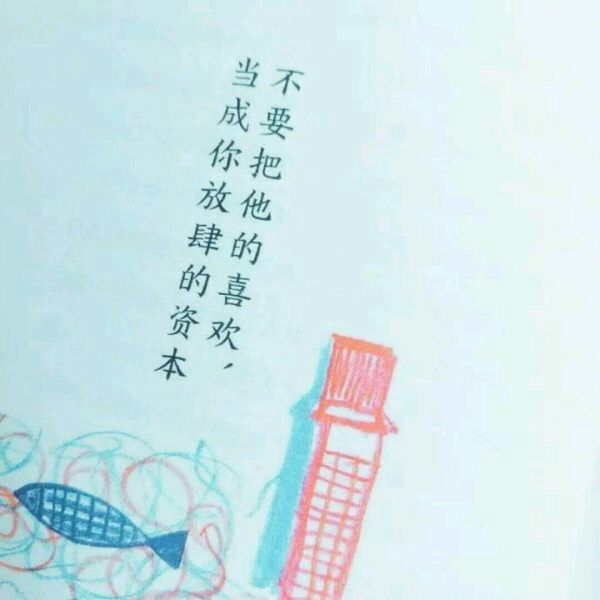 不要把他的喜欢，
当成你放肆的资本